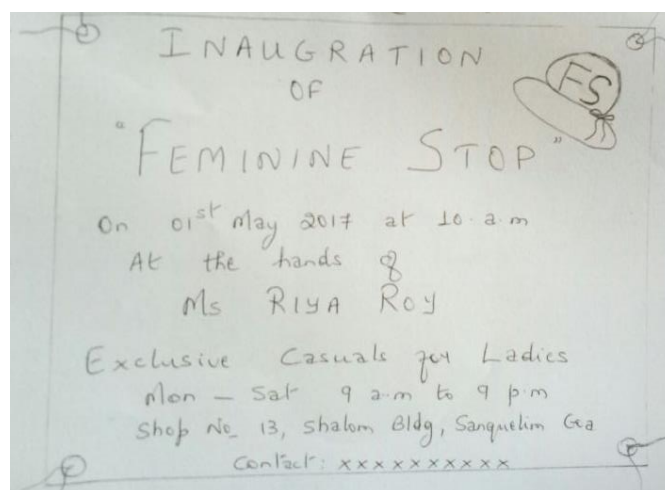 INAUGRATION
OF
FS
"FEMININE STOP"
On 01st May 2017 at 10.a.m
At the hands of
Ms RIYA ROY
Exclusive Casuals for Ladies
Mon - Sat 9 a.m to 9 p.m
Shop No 13, Shalom Bldg, Sanquelim Goa
Contact: xxxxxxxxxx